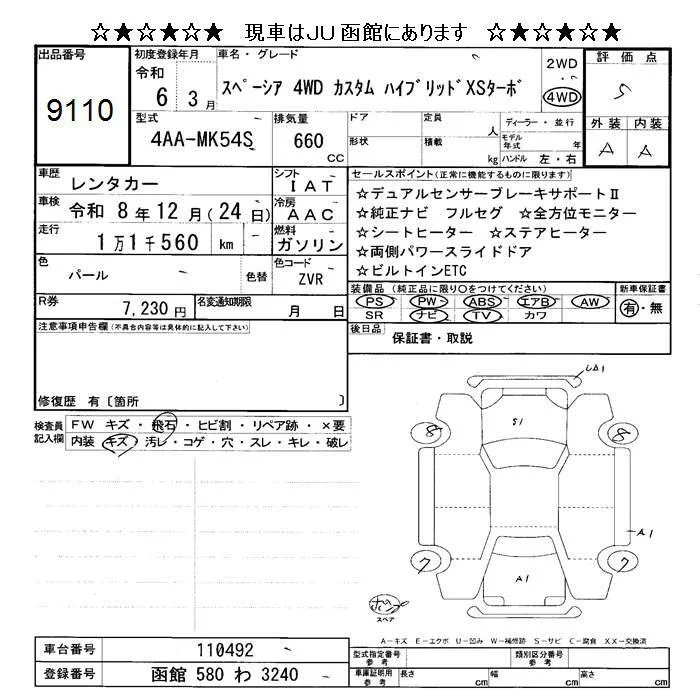 ☆★☆★☆★ 現車はJU函館にあります ☆★☆★☆★
出品番号
9110
初度登録年月
令和
6 3月
車名・グレード
スペーシア 4WD カスタム ハイブリッドXSターボ
2WD
・
4WD
評価点
S
外装 内装
A A
型式
4AA-MK54S
排気量
660
CC
ドア
形状
定員
人
積載
kg
ディーラー・並行
モデル年式 年
ハンドル 左・右
車歴 レンタカー
シフト IAT
車検 令和 8年12月(24日)
冷房 AAC
走行 1万1千560 km
燃料 ガソリン
色 パール 色替
色コード ZVR
R券 7,230円
名変通知期限 月 日
セールスポイント(正常に機能するものに限ります)
☆デュアルセンサーブレーキサポートⅡ
☆純正ナビ フルセグ ☆全方位モニター
☆シートヒーター ☆ステアヒーター
☆両側パワースライドドア
☆ビルトインETC
装備品 (純正品に限り○をつけてください)
PS PW ABS エアB AW
SR ナビ TV カワ
新車保証書
有・無
後日品 保証書・取説
注意事項申告欄(不具合内容等は具体的に記入して下さい)
修復歴 有〔箇所 〕
検査員記入欄
FW キズ・飛石・ヒビ割・リペア跡・×要
内装 キズ・汚レ・コゲ・穴・スレ・キレ・破レ
S1
8 8
A1
7 7
A1
スペア
A-キズ E-エクボ U-凹み W-補修跡 S-サビ C-腐食 XX-交換済
車台番号 110492
登録番号 函館 580 わ 3240
型式指定番号 参考
類別区分番号 参考
車庫証明用 参考
長さ cm 幅 cm 高さ cm